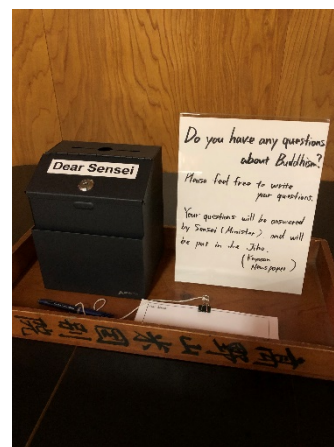 Dear Sensei
Do you have any questions
about Buddhism?
Please feel free to write
your questions.
Your questions will be answered
by Sensei (Minister) and will
be put in the Jiho.
(Koyasan
Newspaper)
高野山米國別院